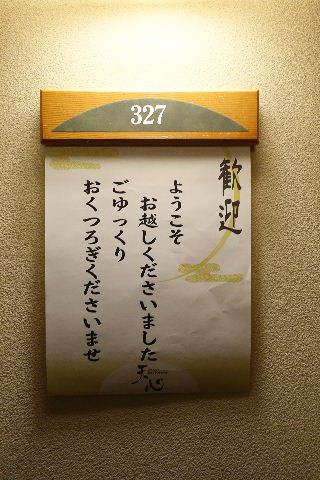 327
歓迎
ようこそ
お越しくださいました
ごゆっくり
おくつろぎくださいませ
天心